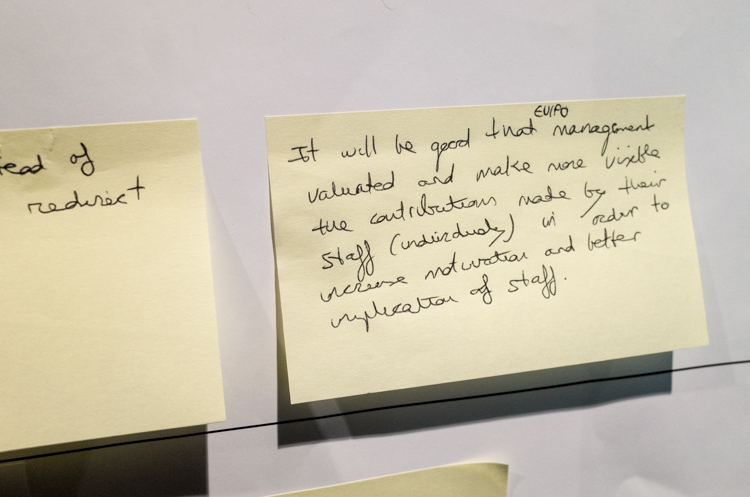 ead of
redirect
EUIPO
It will be good that management
valuated and make more visible
the contributions made by their
staff (individualy) in order to
increase motivation and better
implication of staff.